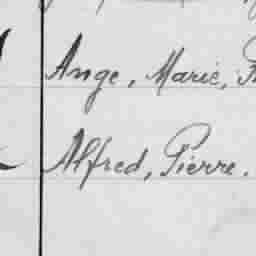 Ange, Marie,
Alfred, Pierre.